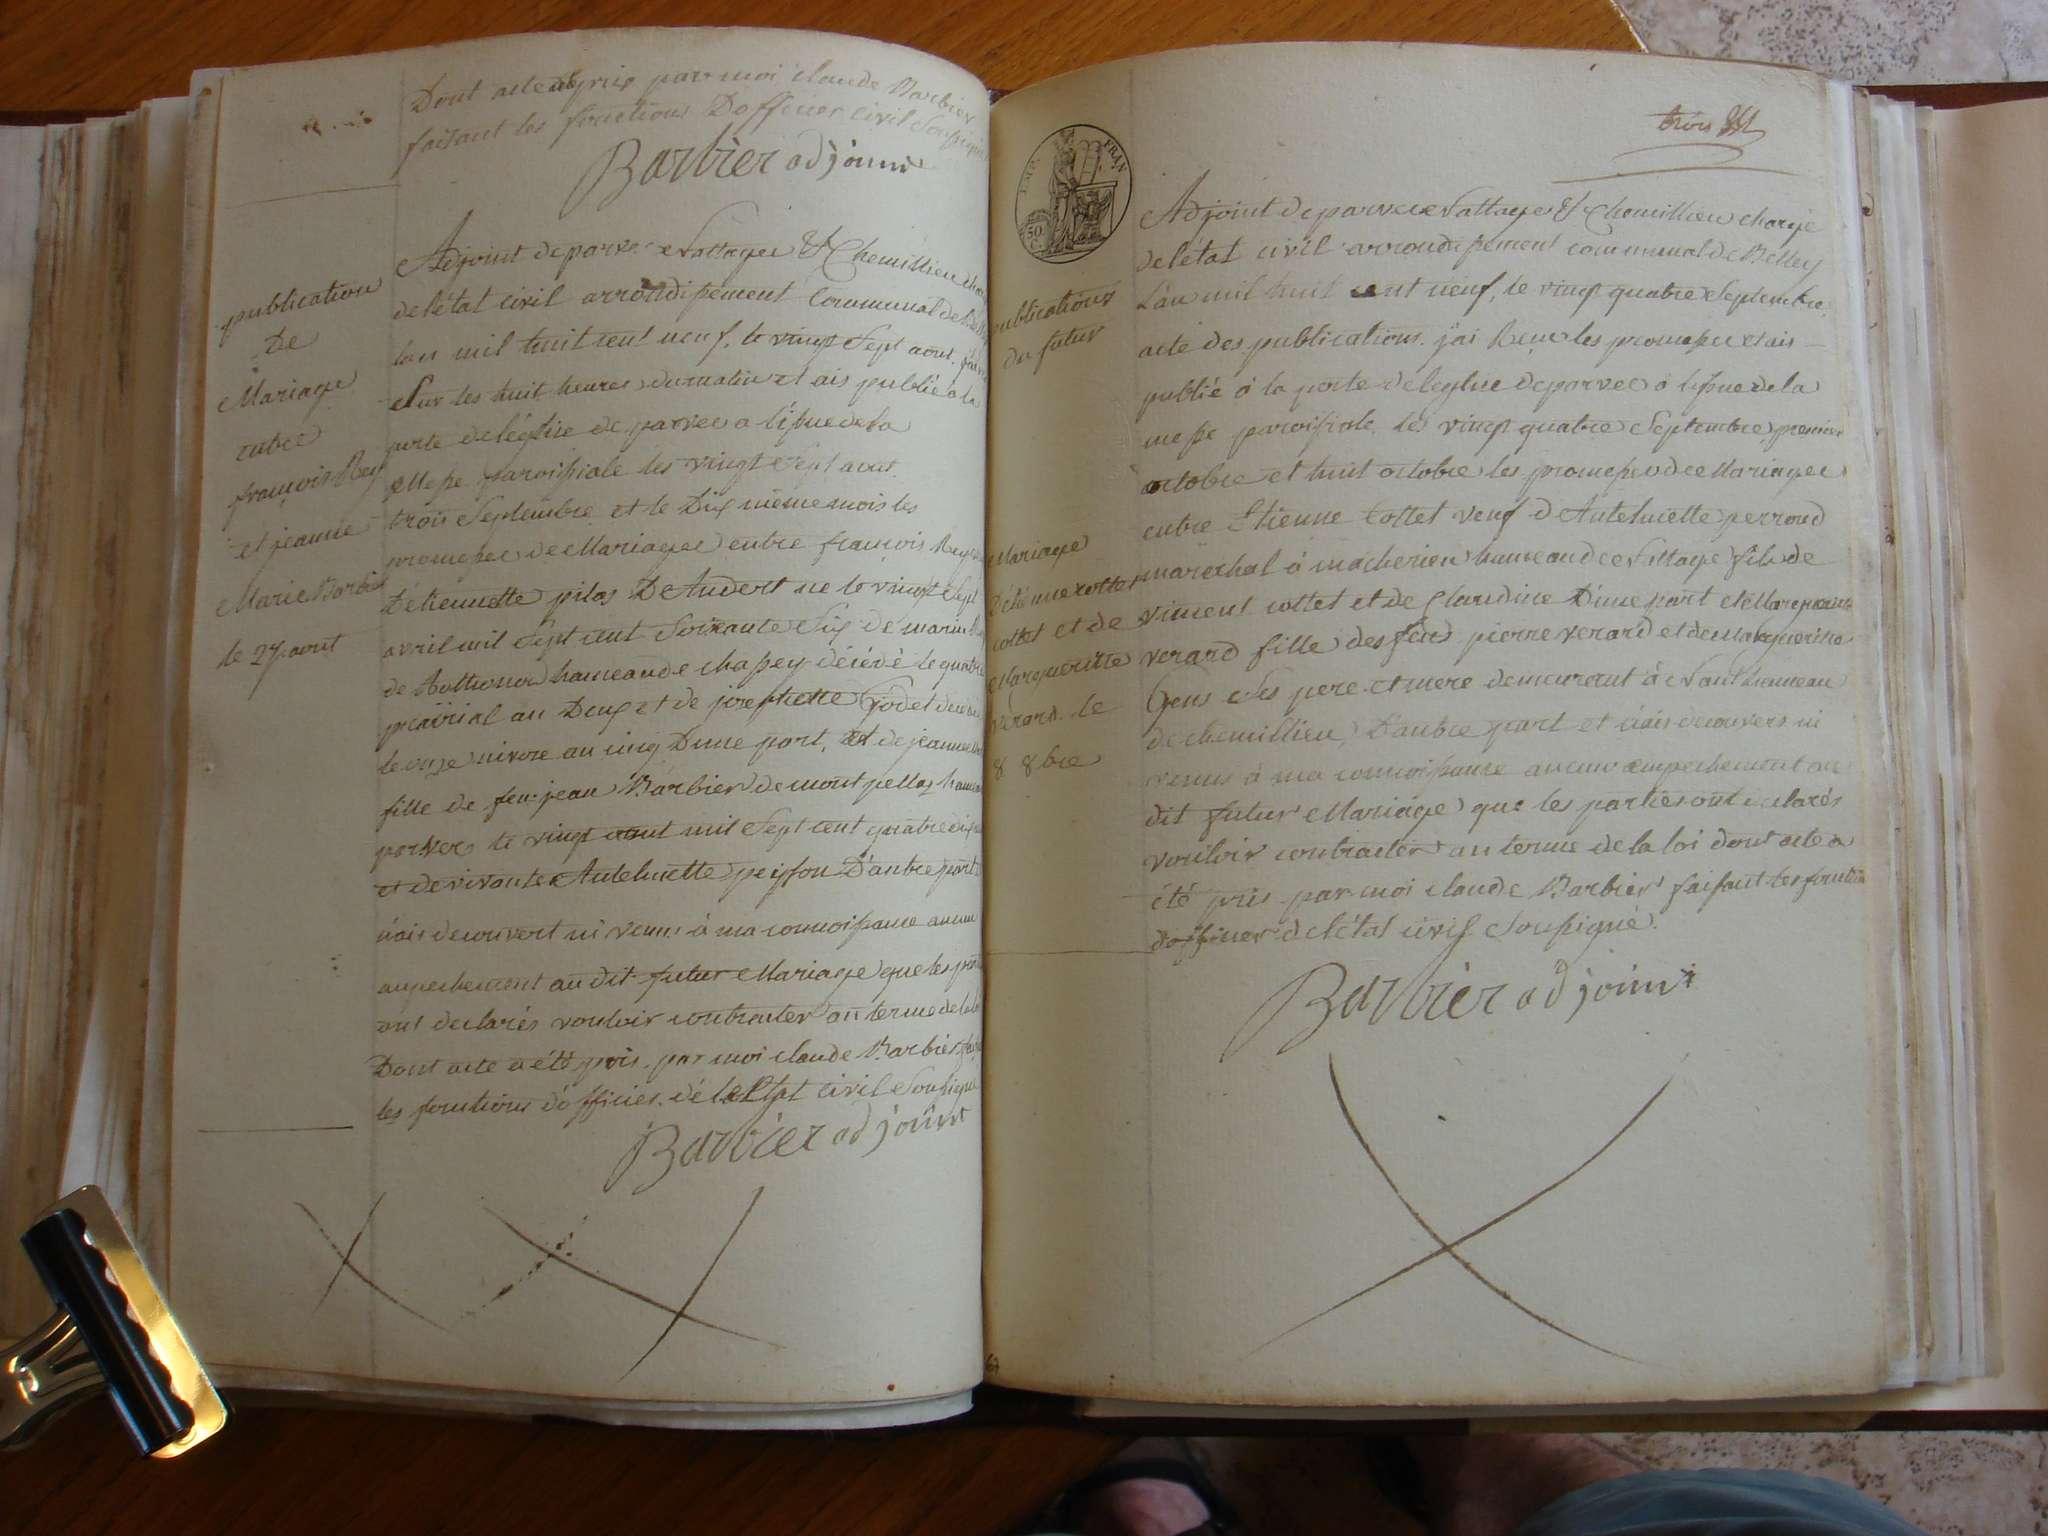 Dont acte a été pris par moi claude Barbier
faisant les fonctions D officier civil Soussigné
Barbier adjoint
publication
De
Mariage
entre
françois Rey
et jeanne
Marie Barbier
le 27 aout
Adjoint de parve Nattage & Chemillieu
de l'état civil arrondissement Communal de
lan mil huit cent neuf, le vingt Sept aout
Sur les huit heures du matin et ais publié à la
porte de l'église de parves a l'issue de la
Messe paroissiale les vingt Sept aout
trois Septembre et le Dix même mois les
promesses de Mariages entre françois Rey
D'étiennette pilas De Andert ne le vingt Sept
avril mil Sept cent Soixante Six de
de hameau de chasey décédé le quatre
prairial an Deux et de josephette Godet
le onze nivose an cinq Dune part, et de jeanne
fille de feu jean Barbier de montpellaz
parves le vingt aout mil Sept cent quatre
et de vivante Antelmette peysson D'autre part
n'ais decouvert ni venus à ma connoissance aucun
anpechement au dit futur Mariage que les
ont declarés vouloir contracter an terme de la
Dont acte a été pris par moi claude Barbier
les fonctions d'officier de l'Etat civil Soussigné
Barbier adjoint
trois
EMP. FRAN
50 C.
publications
du futur
Mariage
D'étiene cottet
cottet et de
Margueritte
verard le
8 8bre
Adjoint de parves Nattages & Chemillieu chargé
de l'état civil arrondissement communal de Belley
L'an mil huit cent neuf, le vingt quatre Septembre
acte des publications. j'ai Reçue les promesse et ais
publié à la porte de l'eglise de parves a l'issue de la
messe paroissiale les vingt quatre Septembre, premier
octobre et huit octobre les promesses de Mariages
entre Etienne Cottet veuf d Antelmette perroud
marechal à macherieu hameau de Nattage fils de
viment cottet et de Claudine D'une part et Margueritte
verard fille des feus pierre verard et de Margueritte
Gens Ses pere et mere demeurant à Nant hameau
de chemillieu, D'autre part et n'ais decouvers ni
venus à ma connoissance aucun empechement au
dit futur Mariage que les parties ont declarés
vouloir contracter an terme de la loi dont acte a
été pris par moi claude Barbier faisant les fonction
d'officier de l'état civil Soussigné
Barbier adjoint